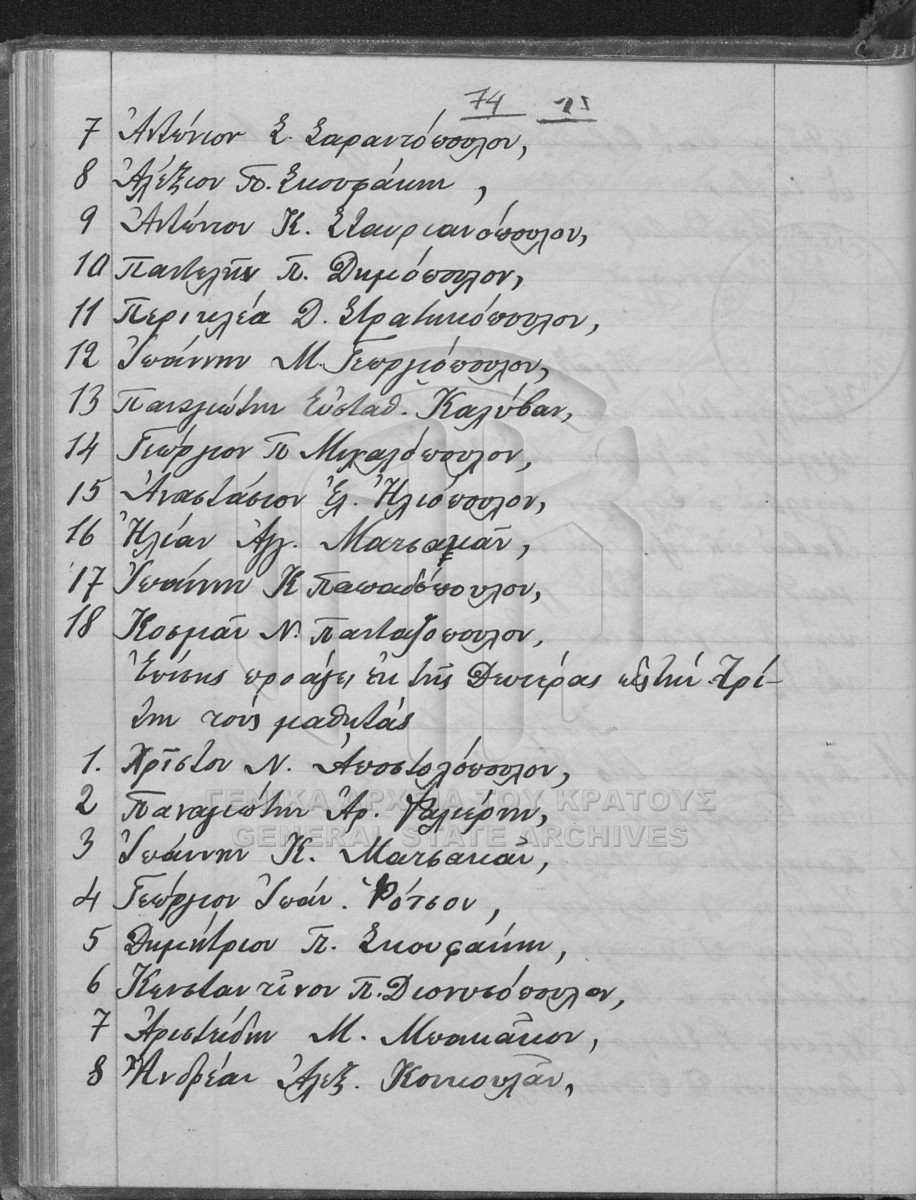 74
7 Ἀντώνιον Σ. Σαραντόπουλον,
8 Ἀλέξιον Π. Σκουφάκην,
9 Ἀντώνιον Κ. Σταυριανόπουλον,
10 Παντελῆν Π. Δημόπουλον,
11 Περικλέα Δ. Στρατικόπουλον,
12 Ἰωάννην Μ. Γεωργιόπουλον,
13 Παναγιώτην Εὐσταθ. Καλύβαν,
14 Γεώργιον Π Μιχαλόπουλον,
15 Ἀναστάσιον Ἑλ. Ἠλιόπουλον,
16 Ἠλίαν Ἀγ. Ματσαμᾶν,
17 Ἰωάννην Κ Παπαδόπουλον,
18 Κοσμᾶν Ν. Πανταζόπουλον,
Ἐπίσης προάγει ἐκ τῆς Δευτέρας εἰς τήν Τρί-
την τούς μαθητάς
1. Χρῖστον Ν. Ἀποστολόπουλον,
2 Παναγιώτην Ἀρ. Φαλιέρην,
3 Ἰωάννην Κ. Ματσακᾶν,
4 Γεώργιον Ἰωάν. Ρότσον,
5 Δημήτριον Π. Σκουφάκην,
6 Κωνσταντῖνον Π. Διονυσόπουλον,
7 Ἀριστείδην Μ. Μπακᾶκον,
8 Ἀνδρέαν Ἀλεξ. Κουκουλᾶν,
ΓΕΝΙΚΑ ΑΡΧΕΙΑ ΤΟΥ ΚΡΑΤΟΥΣ
GENERAL STATE ARCHIVES